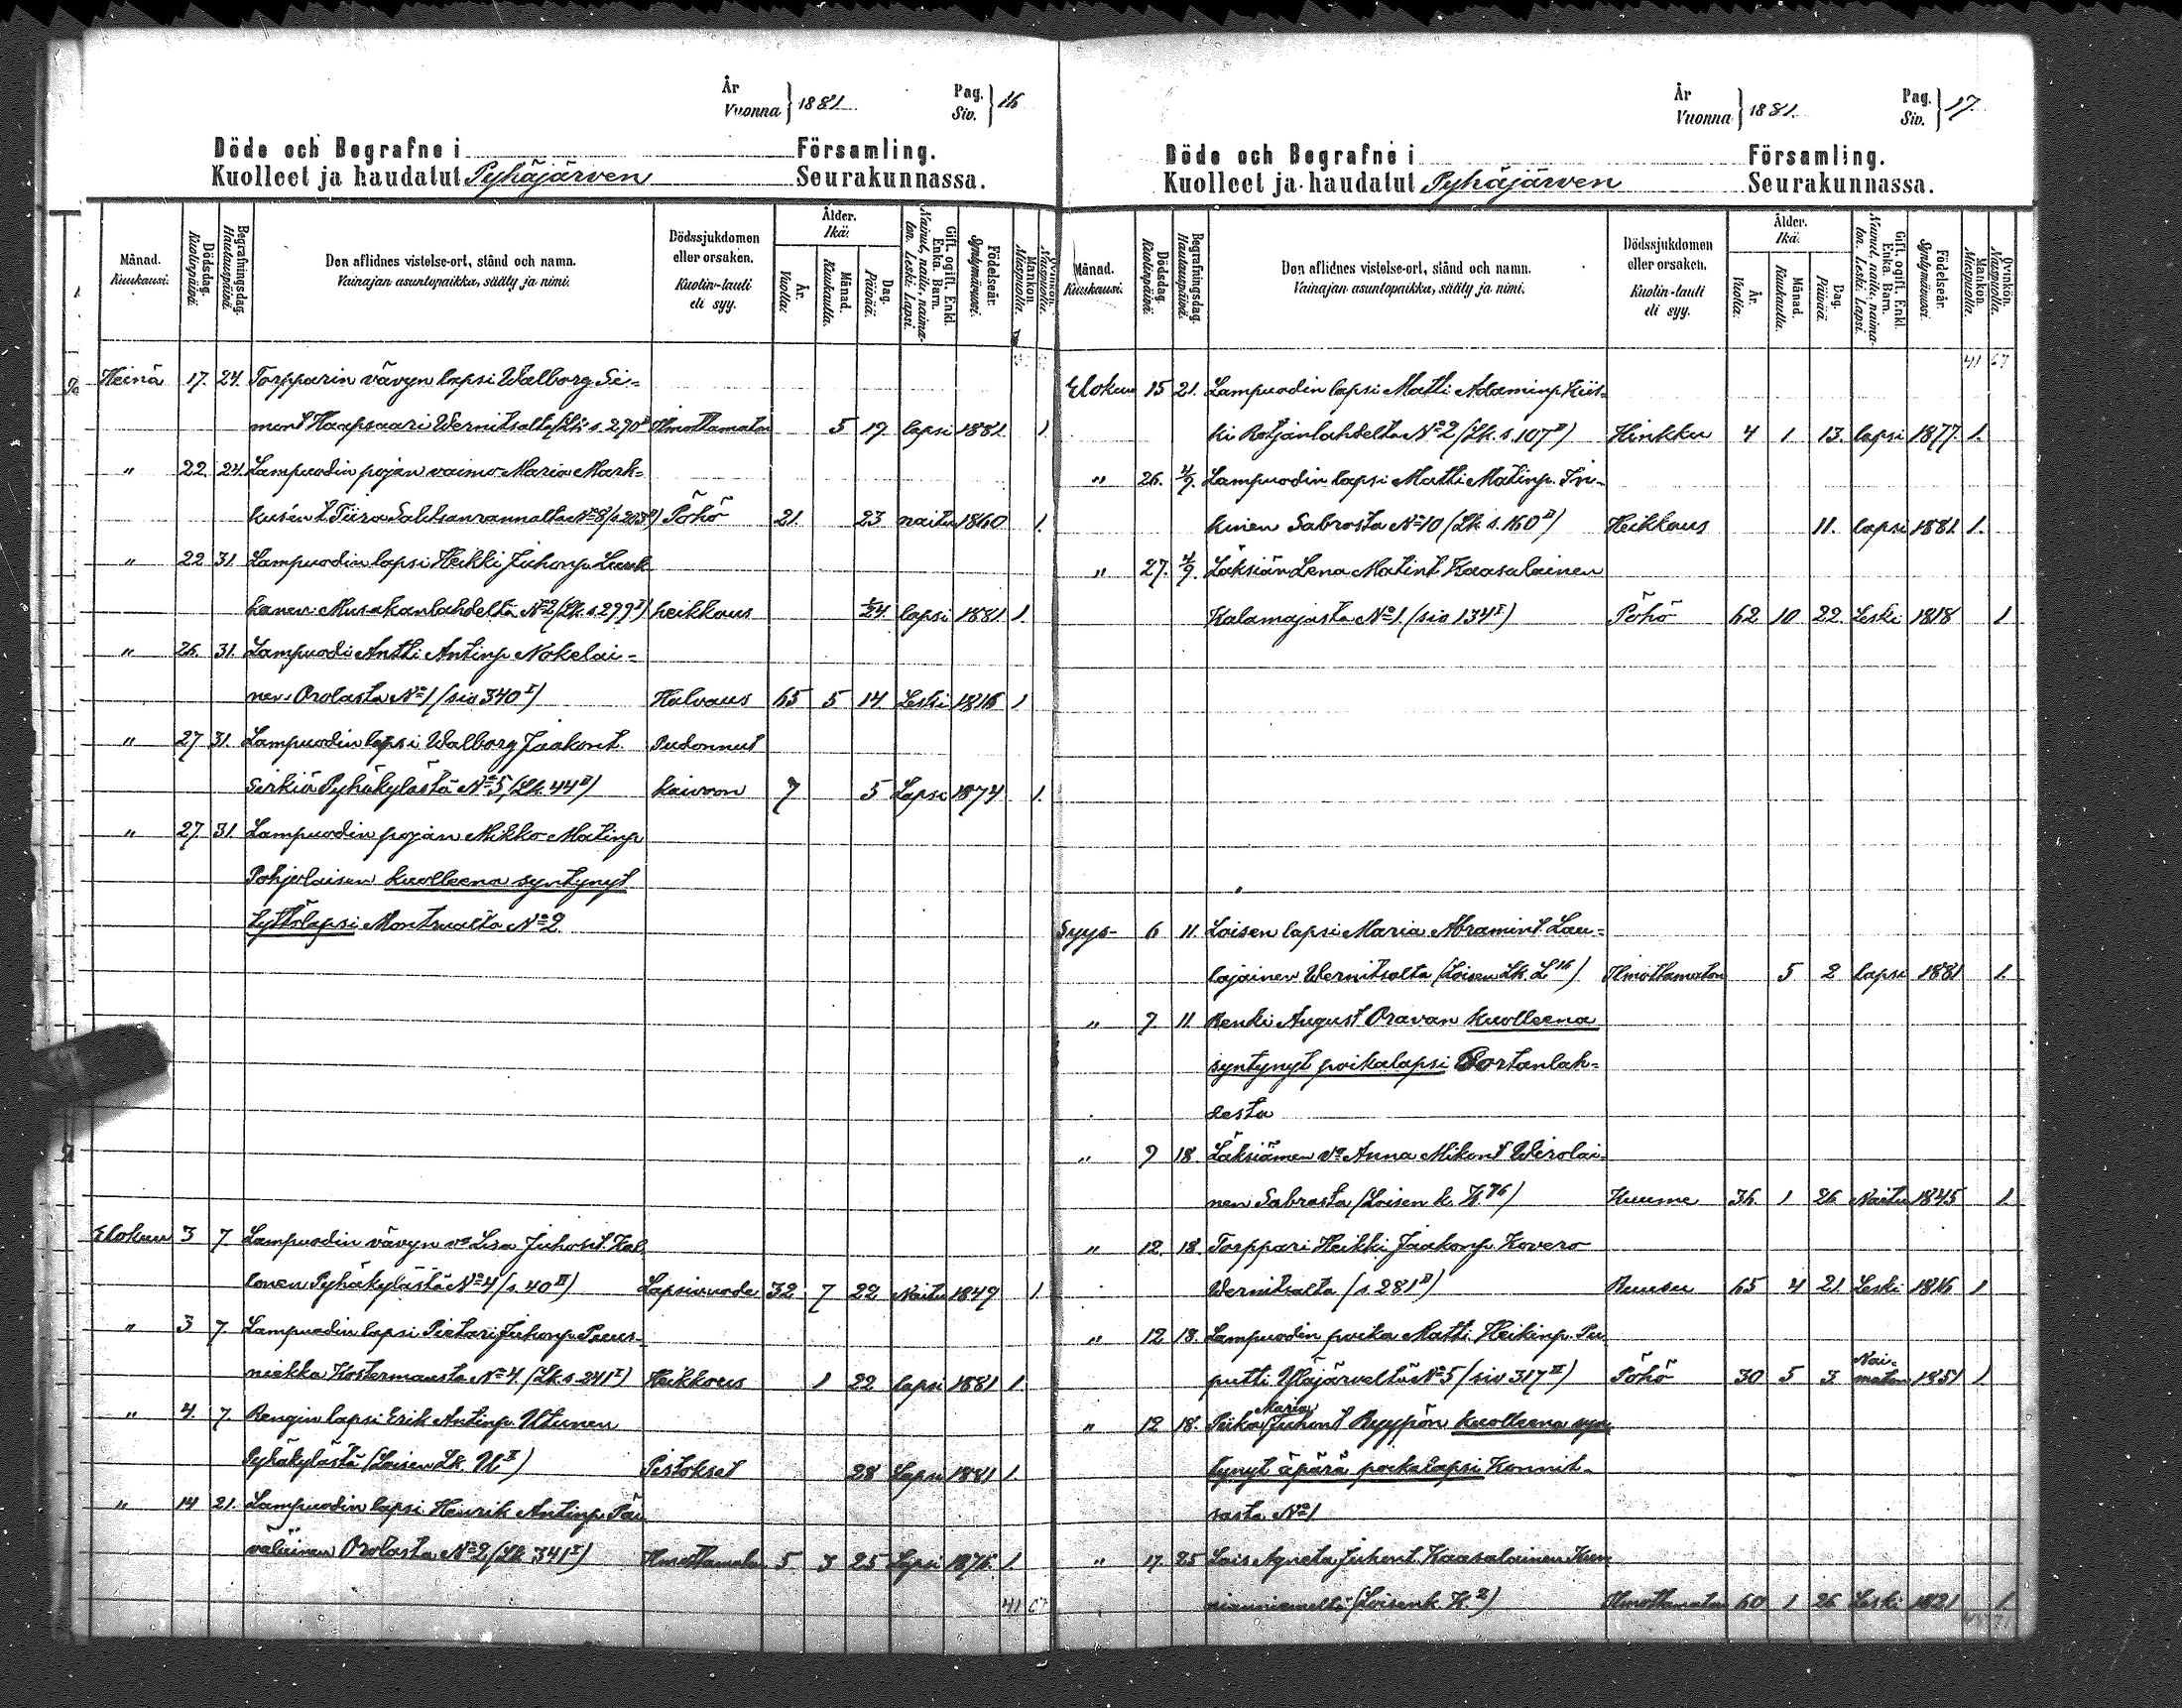 År
Vuonna } 1881. Pag.
Siv. } 16
Döde och Begrafne i Församling.
Kuolleet ja haudatut Pyhäjärven Seurakunnassa.
Månad.
Kuukausi.
Dödsdag.
Kuolinpäivä.
Begrafningsdag.
Hautauspäivä.
Den aflidnes vistelse-ort, stånd och namn.
Vainajan asuntopaikka, sääty ja nimi.
Dödssjukdomen
eller orsaken.
Kuolin-tauti
eli syy.
Ålder.
Ikä.
År.
Vuotta.
Månad.
Kuukautta.
Dag.
Päivää.
Gift, ogift, Enkl.
Enka. Barn.
Nainut, naitu, naima-
ton. Leski. Lapsi.
Födelseår.
Syntymävuosi.
Mankön.
Miespuolia.
Qvinkön.
Naispuolia.
Heinä 17. 24. Torpparin vävyn lapsi Walborg Si=
mont Haapsaari Wernitsalta (Lk. s. 270 II) Ilmottamaton 5 17. lapsi 1881. 1.
" 22. 24. Lampuodin pojan vaimo Maria Mark=
kusen t. Tiira Salitsanrannalta No 8 Pöhö 21. 23 naitu 1860 1.
" 22 31. Lampuodin lapsi Heikki Juhonp. Leuk
kanen Musakanlahdelta No 2 (Lk. s. 299 I) heikkous 1/24. lapsi 1881. 1.
" 26. 31. Lampuodi Antti Antinp. Nokelai=
nen Orolasta No 1 (siv 340 I) Halvaus 65 5 14. Leski 1816 1
" 27 31. Lampuodin lapsi Walborg Jaakont. Pudonnut
Sirkiä Pyhäkylästä No 5, (Lk. 44 II) kaivoon 7 5 Lapsi 1874 1.
" 27. 31. Lampuodin pojan Mikko Matinp
Pohjolaisen kuolleena syntynyt
tyttölapsi Montrualta No 2.
Elokuu 3 7. Lampuodin vävyn vo Lisa Juhont. Kal
lonen Pyhäkylästä No 4 (s. 40 II) Lapsivuode 32 7 22 Naitu 1849 1.
" 3 7. Lampuodin lapsi Pietari Juhonp. Puus-
niekka Kostermaasta No 4. (Lk. s. 241 I) Heikkous 1 22 lapsi 1881 1.
" 4. 7. Rengin lapsi Erik Antinp. Utunen
Pyhäkylästä (Loisen Lk. U I) Pistokset 28 Lapsi 1881 1.
" 14 21. Lampuodin lapsi Henrik Antinp. Päi
väläinen Orolasta No 2, (Lk 341 I) Ilmottamaton 5 3 25 Lapsi 1876. 1.
41 67
År
Vuonna } 1881. Pag.
Siv. } 17.
Döde och Begrafne i Församling.
Kuolleet ja haudatut Pyhäjärven Seurakunnassa.
Månad.
Kuukausi.
Dödsdag.
Kuolinpäivä.
Begrafningsdag.
Hautauspäivä.
Den aflidnes vistelse-ort, stånd och namn.
Vainajan asuntopaikka, sääty ja nimi.
Dödssjukdomen
eller orsaken.
Kuolin-tauti
eli syy.
Ålder.
Ikä.
År.
Vuotta.
Månad.
Kuukautta.
Dag.
Päivää.
Gift, ogift, Enkl.
Enka. Barn.
Nainut, naitu, naima-
ton. Leski. Lapsi.
Födelseår.
Syntymävuosi.
Mankön.
Miespuolia.
Qvinkön.
Naispuolia.
41 67
Elokuu 15 21. Lampuodin lapsi Matti Adaminp. Kiis-
ki Rotjanlahdelta No 2 (Lk. s. 107 II) Hinkku 4 1 13. lapsi 1877. 1.
" 26. 4/9. Lampuodin lapsi Matti Matinp. In-
kinen Sabrosta No 10 (Lk. s. 160 II) Heikkous 11. lapsi 1881. 1.
" 27. 4/9. Läksiän Lena Matint. Kaasalainen
Kalamajasta No 1. (siv 134 I) Pöhö 62 10 22. Leski 1818 1
Syys- 6 11. Loisen lapsi Maria Abramint. Lau=
lajainen Wernitsalta (Loisen Lk. L 16) Ilmottamaton 5 2 lapsi 1881 1.
" 7. 11. Renki August Oravan kuolleena
syntynyt poikalapsi Portanlah=
desta
" 9 18. Läksiämen vo Anna Mikont Wirolai-
nen Sabrosta (Loisen k. K 76) Kuume 36. 1 26 Naitu 1845 1.
" 12. 18 Torppari Heikki Jaakonp. Kovero
Wernitsalta (s 281 II) Ruusu 65 4 21. Leski 1816 1
" 12 18. Lampuodin poika Matti Heikinp. Pu
putti Yläjärveltä No 5 (siv 317 II) Pöhö 30 5 3. Nai-
maton 1851 1
" 12 18. Piika Maria Juhont Ryypön kuolleena syn
tynyt äpärä poikalapsi Konnit-
sasta No 1
" 17. 25 Lois Agneta Juhont. Kaasalainen
(Loisen k. K 2) Ilmottamaton 60 1 26 Leski 1821 1.